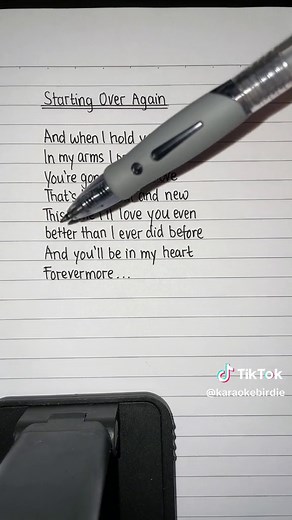 Starting Over Again
And when I hold
In my arms I
You're
That's and new
This I'll love you even
better than I ever did before
And you'll be in my heart
Forevermore...
TikTok
@karaokebirdie